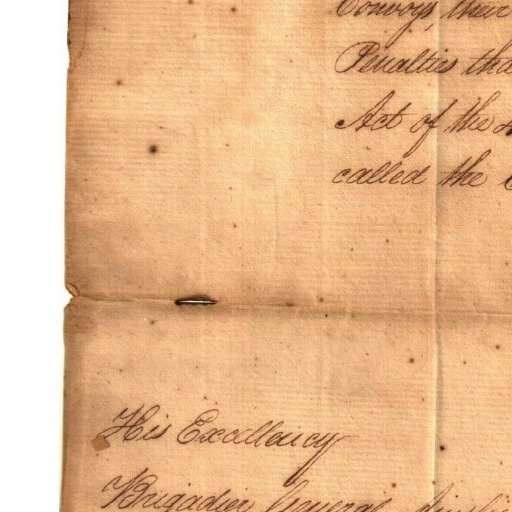 Convoys, their
Penalties tha
Act of the
called the
His Excellency
Brigadier General